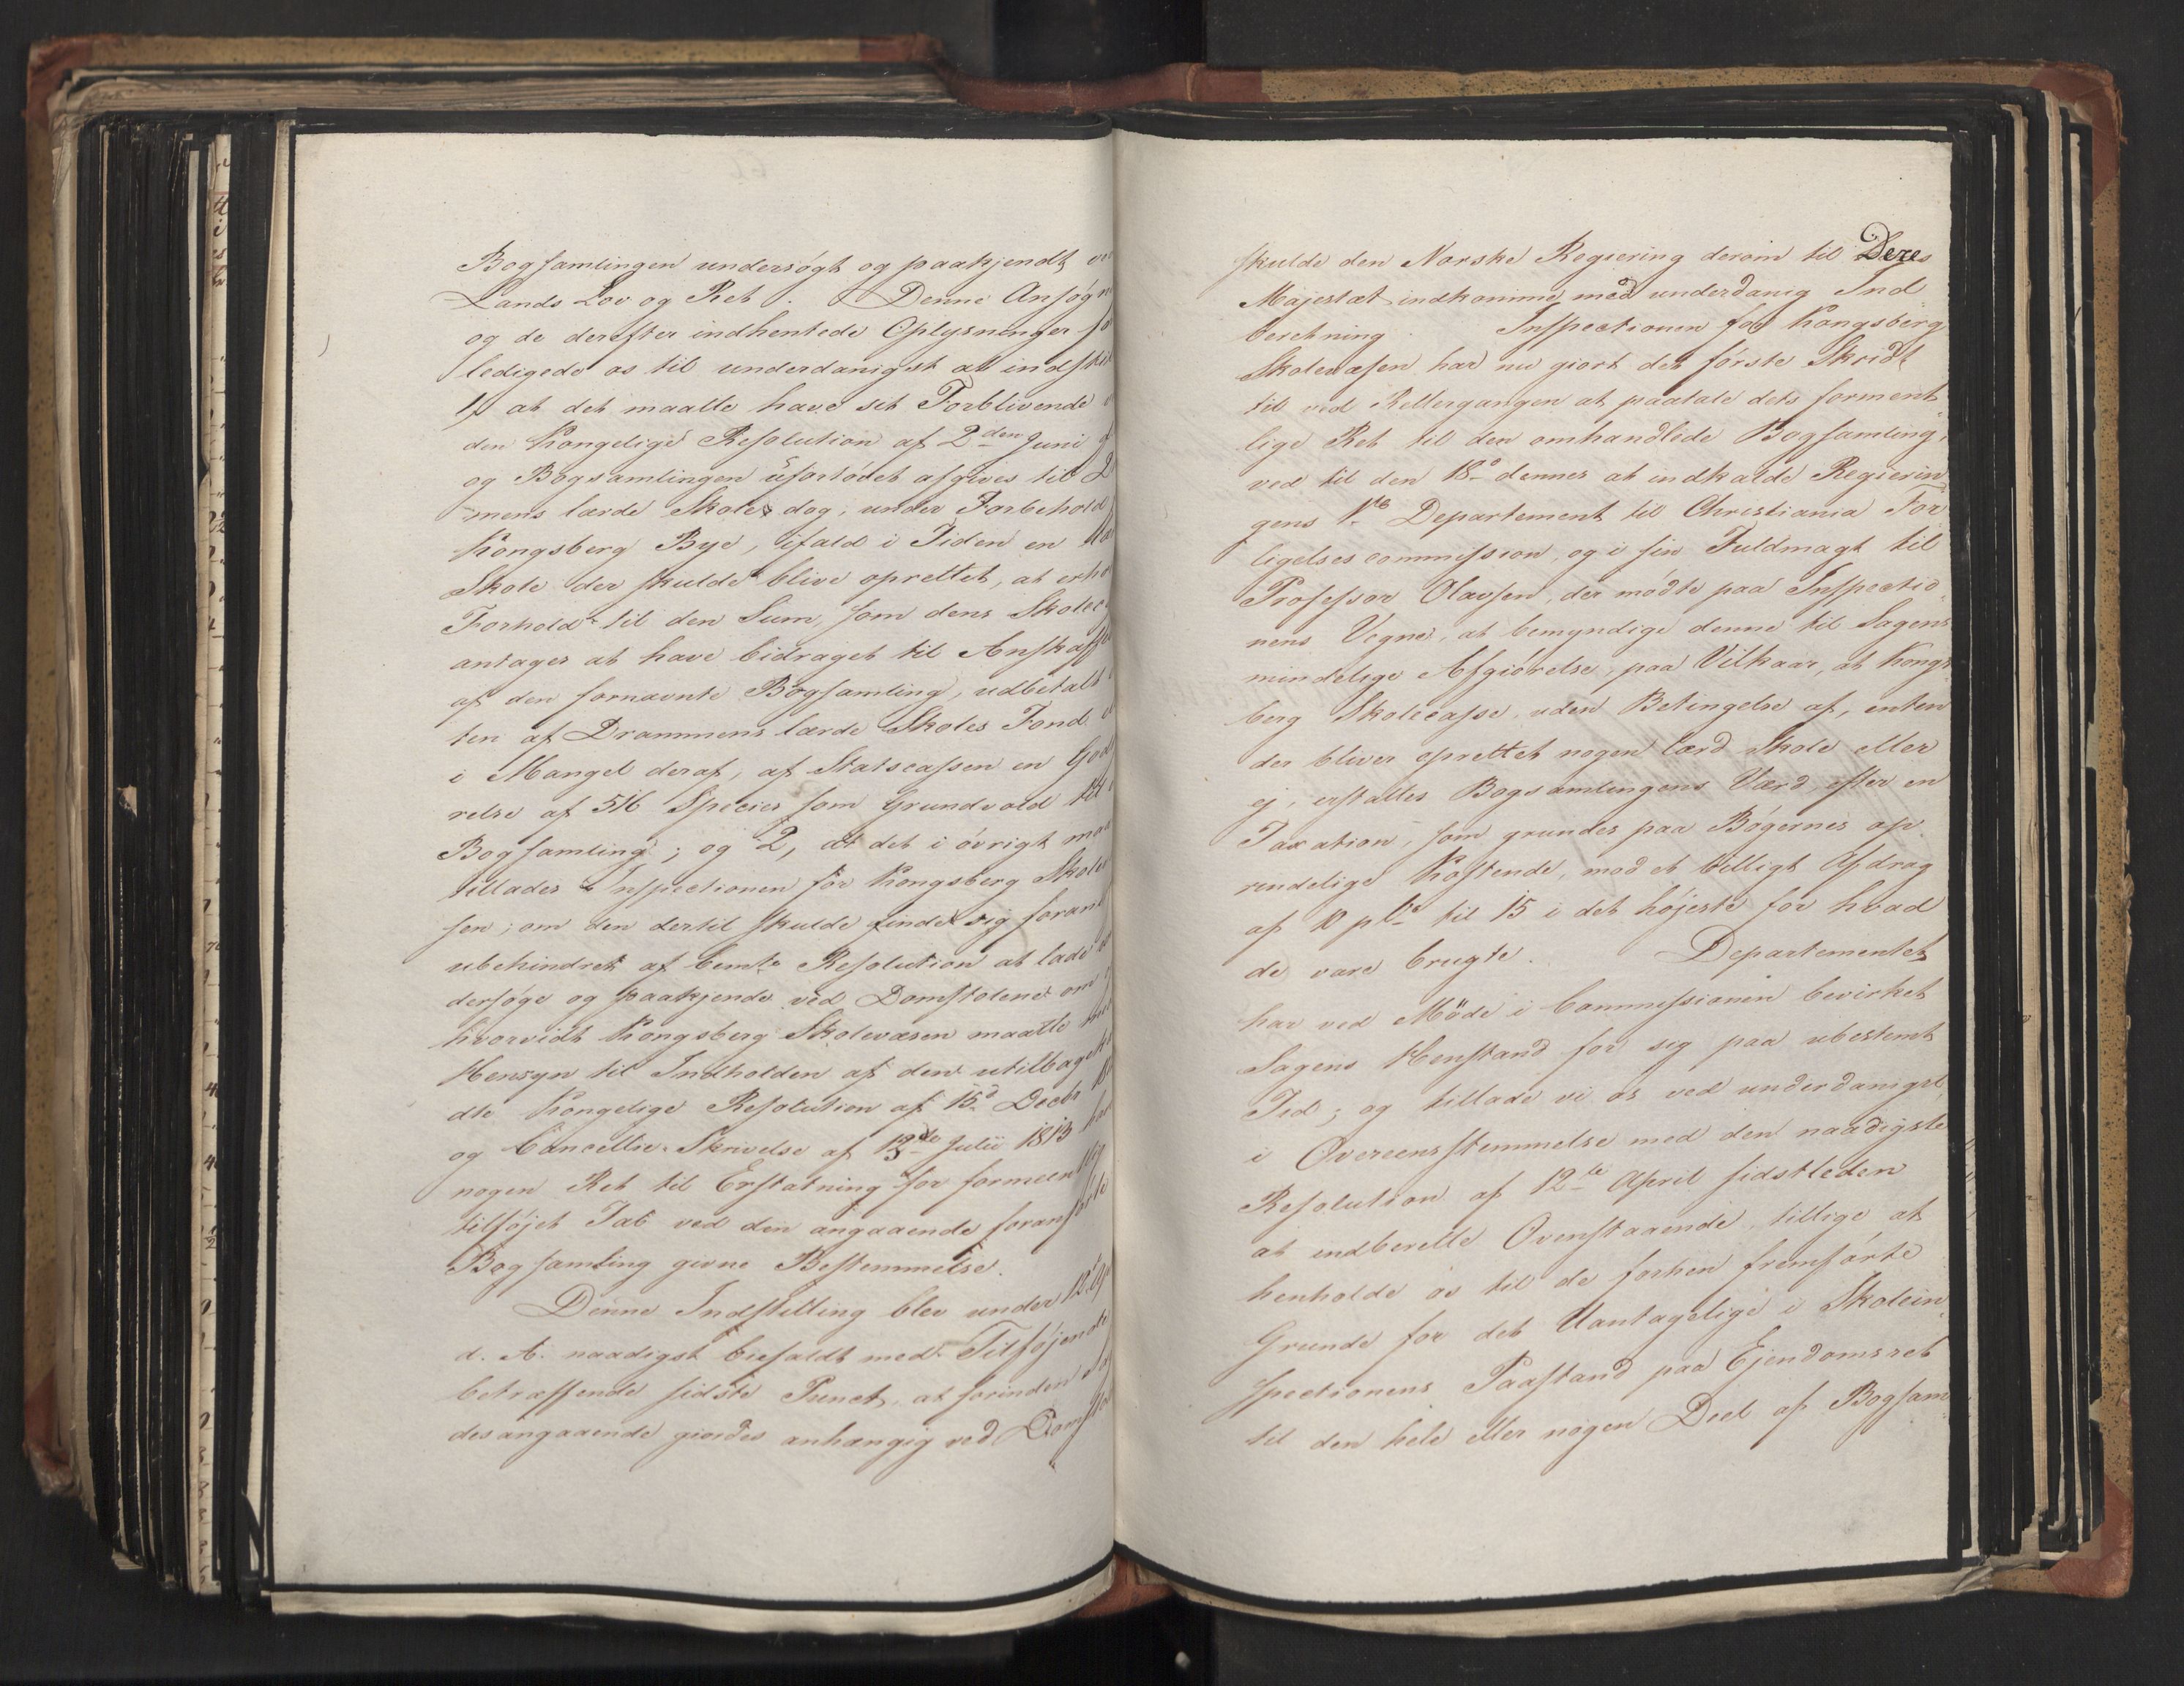 Bogsamlingen undersøgt og paakjendt
Lands Lov og Ret. Denne Ansøgn
og de derefter indhentede Oplysninger
ledigede os til underdanigst at indstil
1, at det maatte have sit Forblivende
den Kongelige Resolution af 2den Juni
og Bogsamlingen ufortøvet afgives til
mens lærde Skole, dog, under Forbehold
Kongsberg Bye, ifald i Tiden en
Skole der skulde blive oprettet, at erho
Forhold til den Sum, som dens Skolec
antages at have bidraget til Anskaff
af den fornævnte Bogsamling, udbetalt
ten af Drammens lærde Skoles Fond
i Mangel deraf, af Statscassen en God
relse af 516 Species som Grundvold til
Bogsamling; og 2, at det i övrigt maa
tillades Inspectionen for Kongsberg Skolev
sen, om den dertil skulde finde sig foranl
ubehindret af bemte Resolution at lade
dersøge og paakjende ved Domstolene om
hvorvidt Kongsberg Skolevæsen maatte
Hensyn til Indholden af den utilbagek
dte Kongelige Resolution af 15d Decbr
og Cancellie-Skrivelse af 13de Julii 1813
nogen Ret til Erstatning for formeentlig
tilføjet Tab ved den angaaende foranførte
Bogsamling givne Bestemmelse.
Denne Indstilling blev under 12te Ap
d. A. naadigst biefaldt med Tilføjende
betræffende sidste Punct, at forinden
desangaaende giordes anhængig ved Domsto
skulde den Norske Regiering derom til Deres
Majestæt indkomme med underdanig Ind
beretning. Inspectionen for Kongsberg
Skolevæsen har nu giort det første Skridt
til ved Rettergangen at paatale dets forment
lige Ret til den omhandlede Bogsamling,
ved til den 18d dennes at indkalde Regierin
gens 1te Departement til Christiania For
ligelsescommission, og i sin Fuldmagt til
Professor Olavsen, der mødte paa Inspectio
nens Vegne, at bemyndige denne til Sagens
mindelige Afgiörelse, paa Vilkaar, at Kongs
berg Skolecasse, uden Betingelse af, enten
der bliver oprettet nogen lærd Skole eller
ej, erstattes Bogsamlingens Værd, efter en
Taxation, som grundes paa Bøgernes op
rindelige Kostende, mod et billigt Afdrag
af 10 pCt til 15 i det højeste for hvad
de vare brugte. Departementet
har ved Möde i Commissionen bevirket
Sagens Henstand for sig paa ubestemt
Tid; og tillade vi os ved underdanigst
i Overeensstemmelse med den naadigste
Resolution af 12te April sidstleden
at indberette Ovenstaaende, tillige at
henholde os til de forhen fremførte
Grunde for det Uantagelige i Skolein
spectionens Paastand paa Ejendomsret
til den hele eller nogen Deel af Bogsam